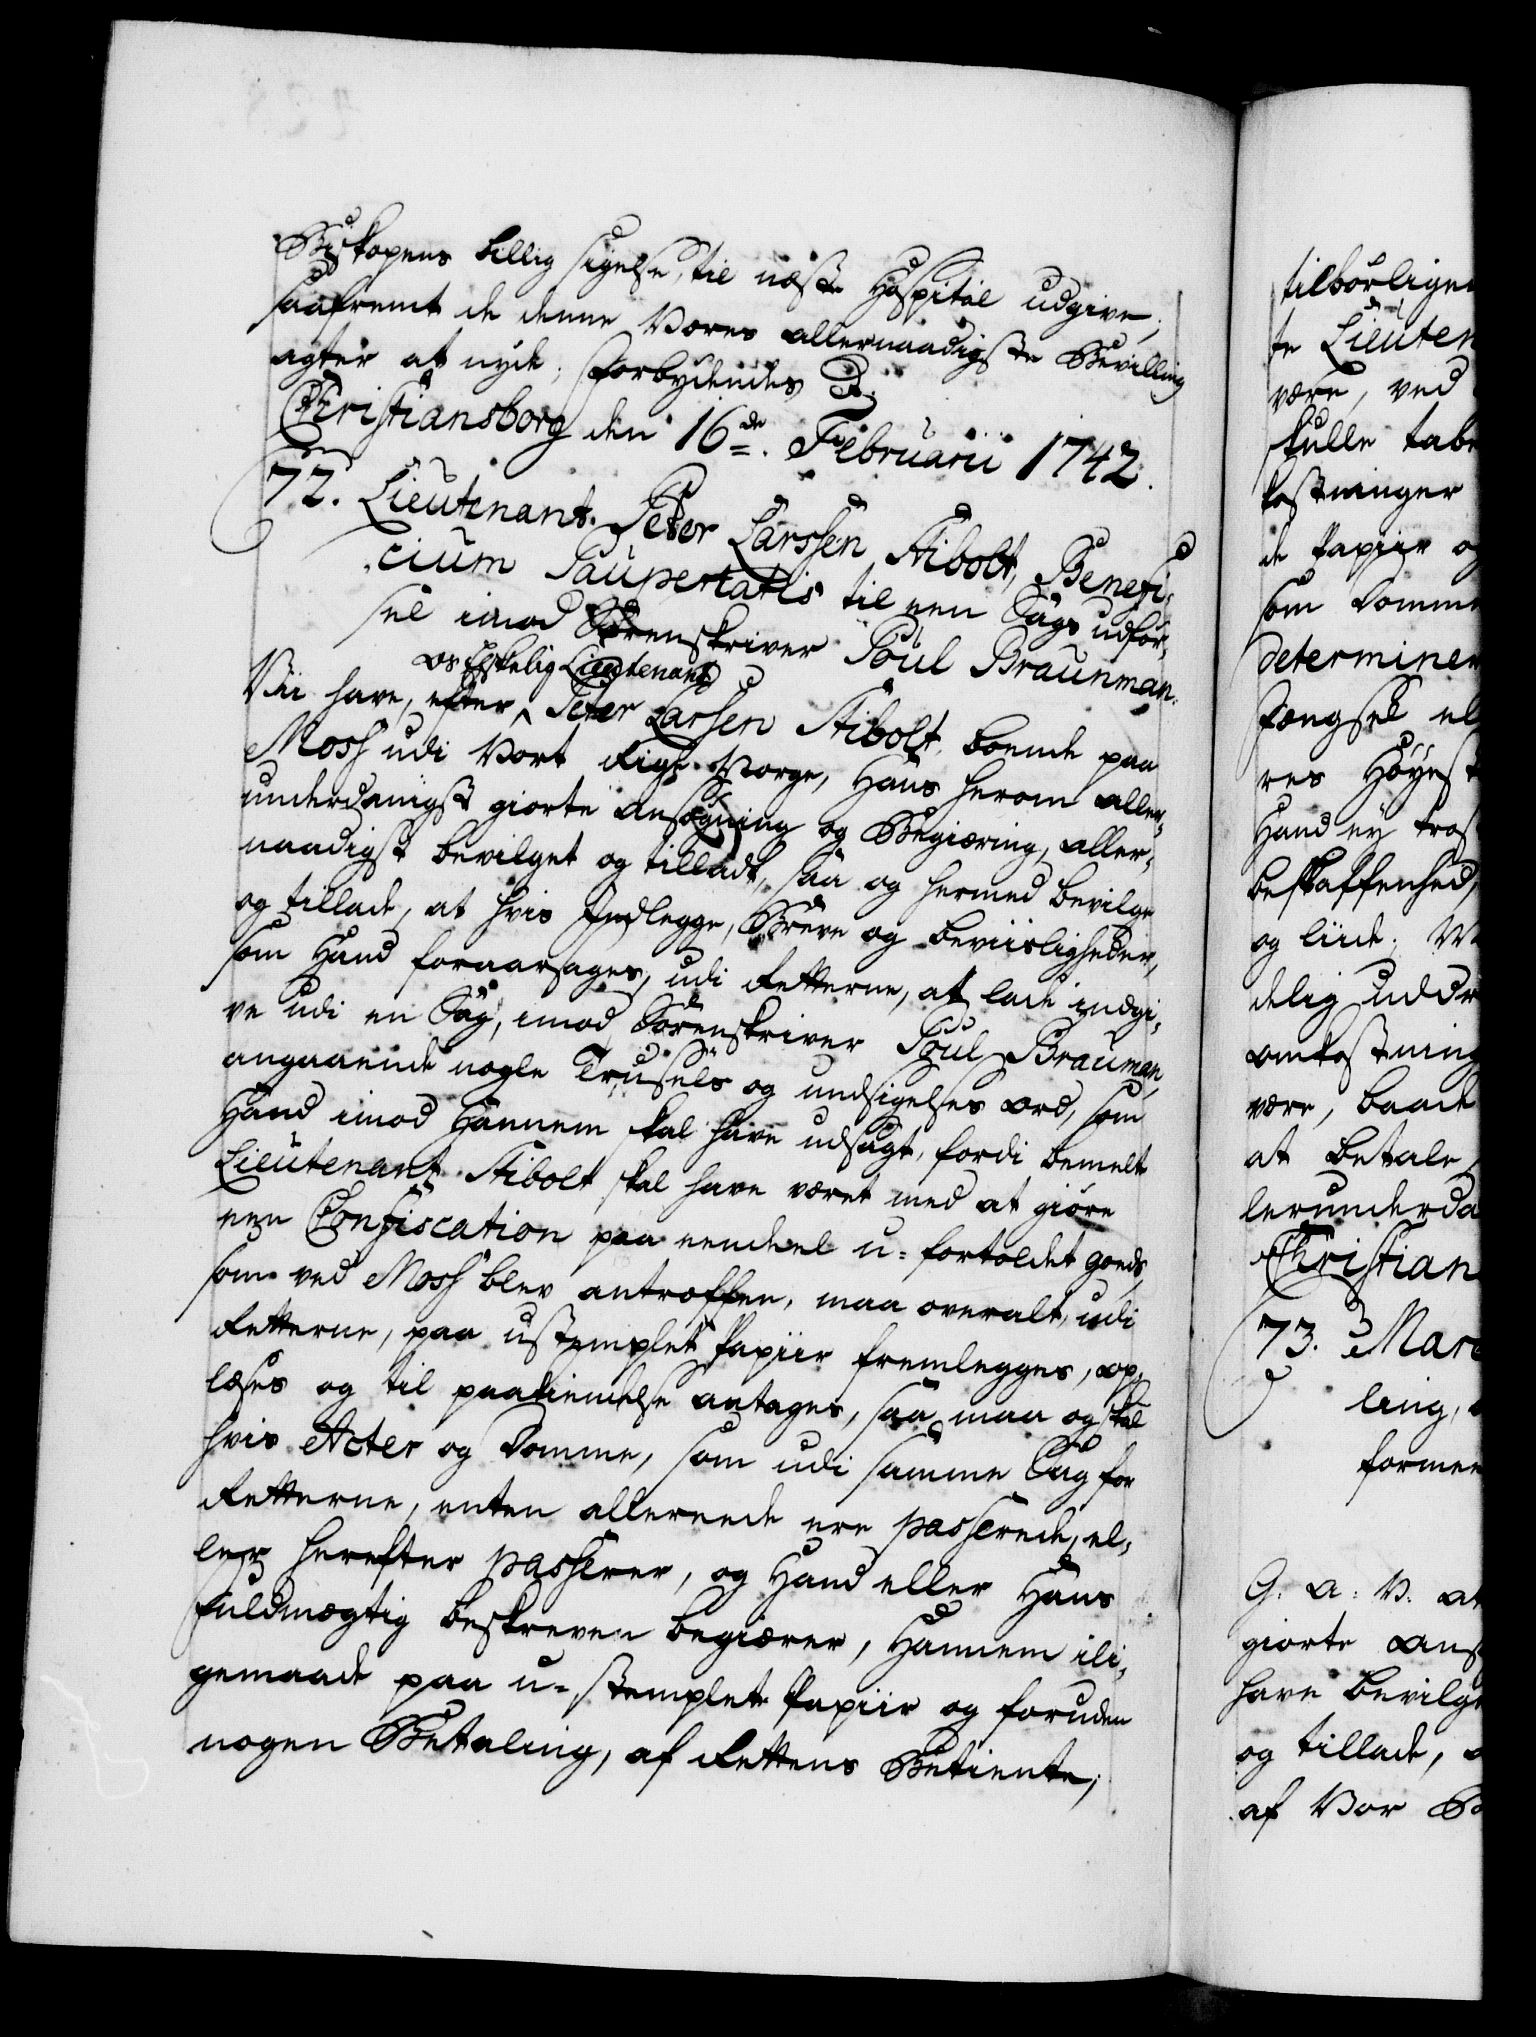 Biskopens billig sigelse, til næste Hospital udgive,
saafremt de denne Vores allernaadigste Bevilling
agter at nyde; Forbydendes &.
Christiansborg den 16de. Februarii 1742.
72. Lieutenant. Peter Larssen Stibolt, Benefi-
cium Paupertatis til een Sags udfør-
sel imod Sorenskriver Poul Braunman.
os Elskelig Lieutenant
Vii have, efter ^ Peter Larsen Stibolt, boende paa
Moss udi Vort Rige Norge, Hans herom aller-
underdanigst giorte ansøgning og Begiæring, aller-
naadigst bevilget og tilladt, saa og hermed bevilge
og tillade, at hvis Indlegge, Breve og beviisligheder,
som Hand foraarsages, udi Retterne, at lade indgi-
ve udi en Sag, imod Sorenskriver Poul Brauman,
angaaende nogle Trusels og undsigelses ord, som
Hand imod Hannem skal have udsagt, fordi bemelt
Lieutenant Stibolt skal have været med at giøre
een Confiscation paa eendeel u-fortoldet goeds,
som ved Moss blev antroffen, maa overalt, udi
Retterne, paa ustemplet Papiir fremlegges, op-
læses og til paakiendelse antages, saa maa og skal
hvis Acter og Domme, som udi samme Sag for
Retterne, enten allereede ere passerede, el-
ler herefter passerer, og Hand eller Hans
fuldmægtig beskreven begiærer, Hannem ili-
gemaade paa u-stemplet Papiir og foruden
nogen Betaling, af Rettens Betiente,
tilbørligen
te Lieuten
være, ved
skulle tabe
kostninger
de Papiir og
som Domme
determiner
fængsel el
res Høyest
Hand ey tros
beskaffenhed,
og liide.
delig uddr
omkostning
være, baade
at betale
lerunderda
Christian
73. Mar
ling,
formee
G: A: V: at
giorte ans
have bevilge
og tillade,
af Vor B